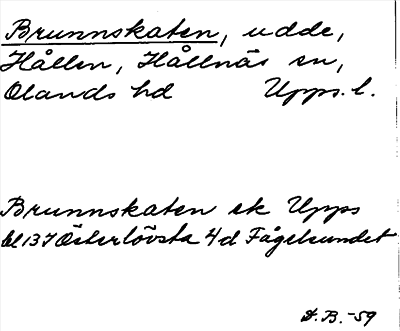 Brunnskaten, udde,
Hållen, Hållnäs sn,
Olands hd Upps. l.
Brunnskaten ek Upps
bl 137 Österlövsta 4d Fågelsundet
D.B. -59